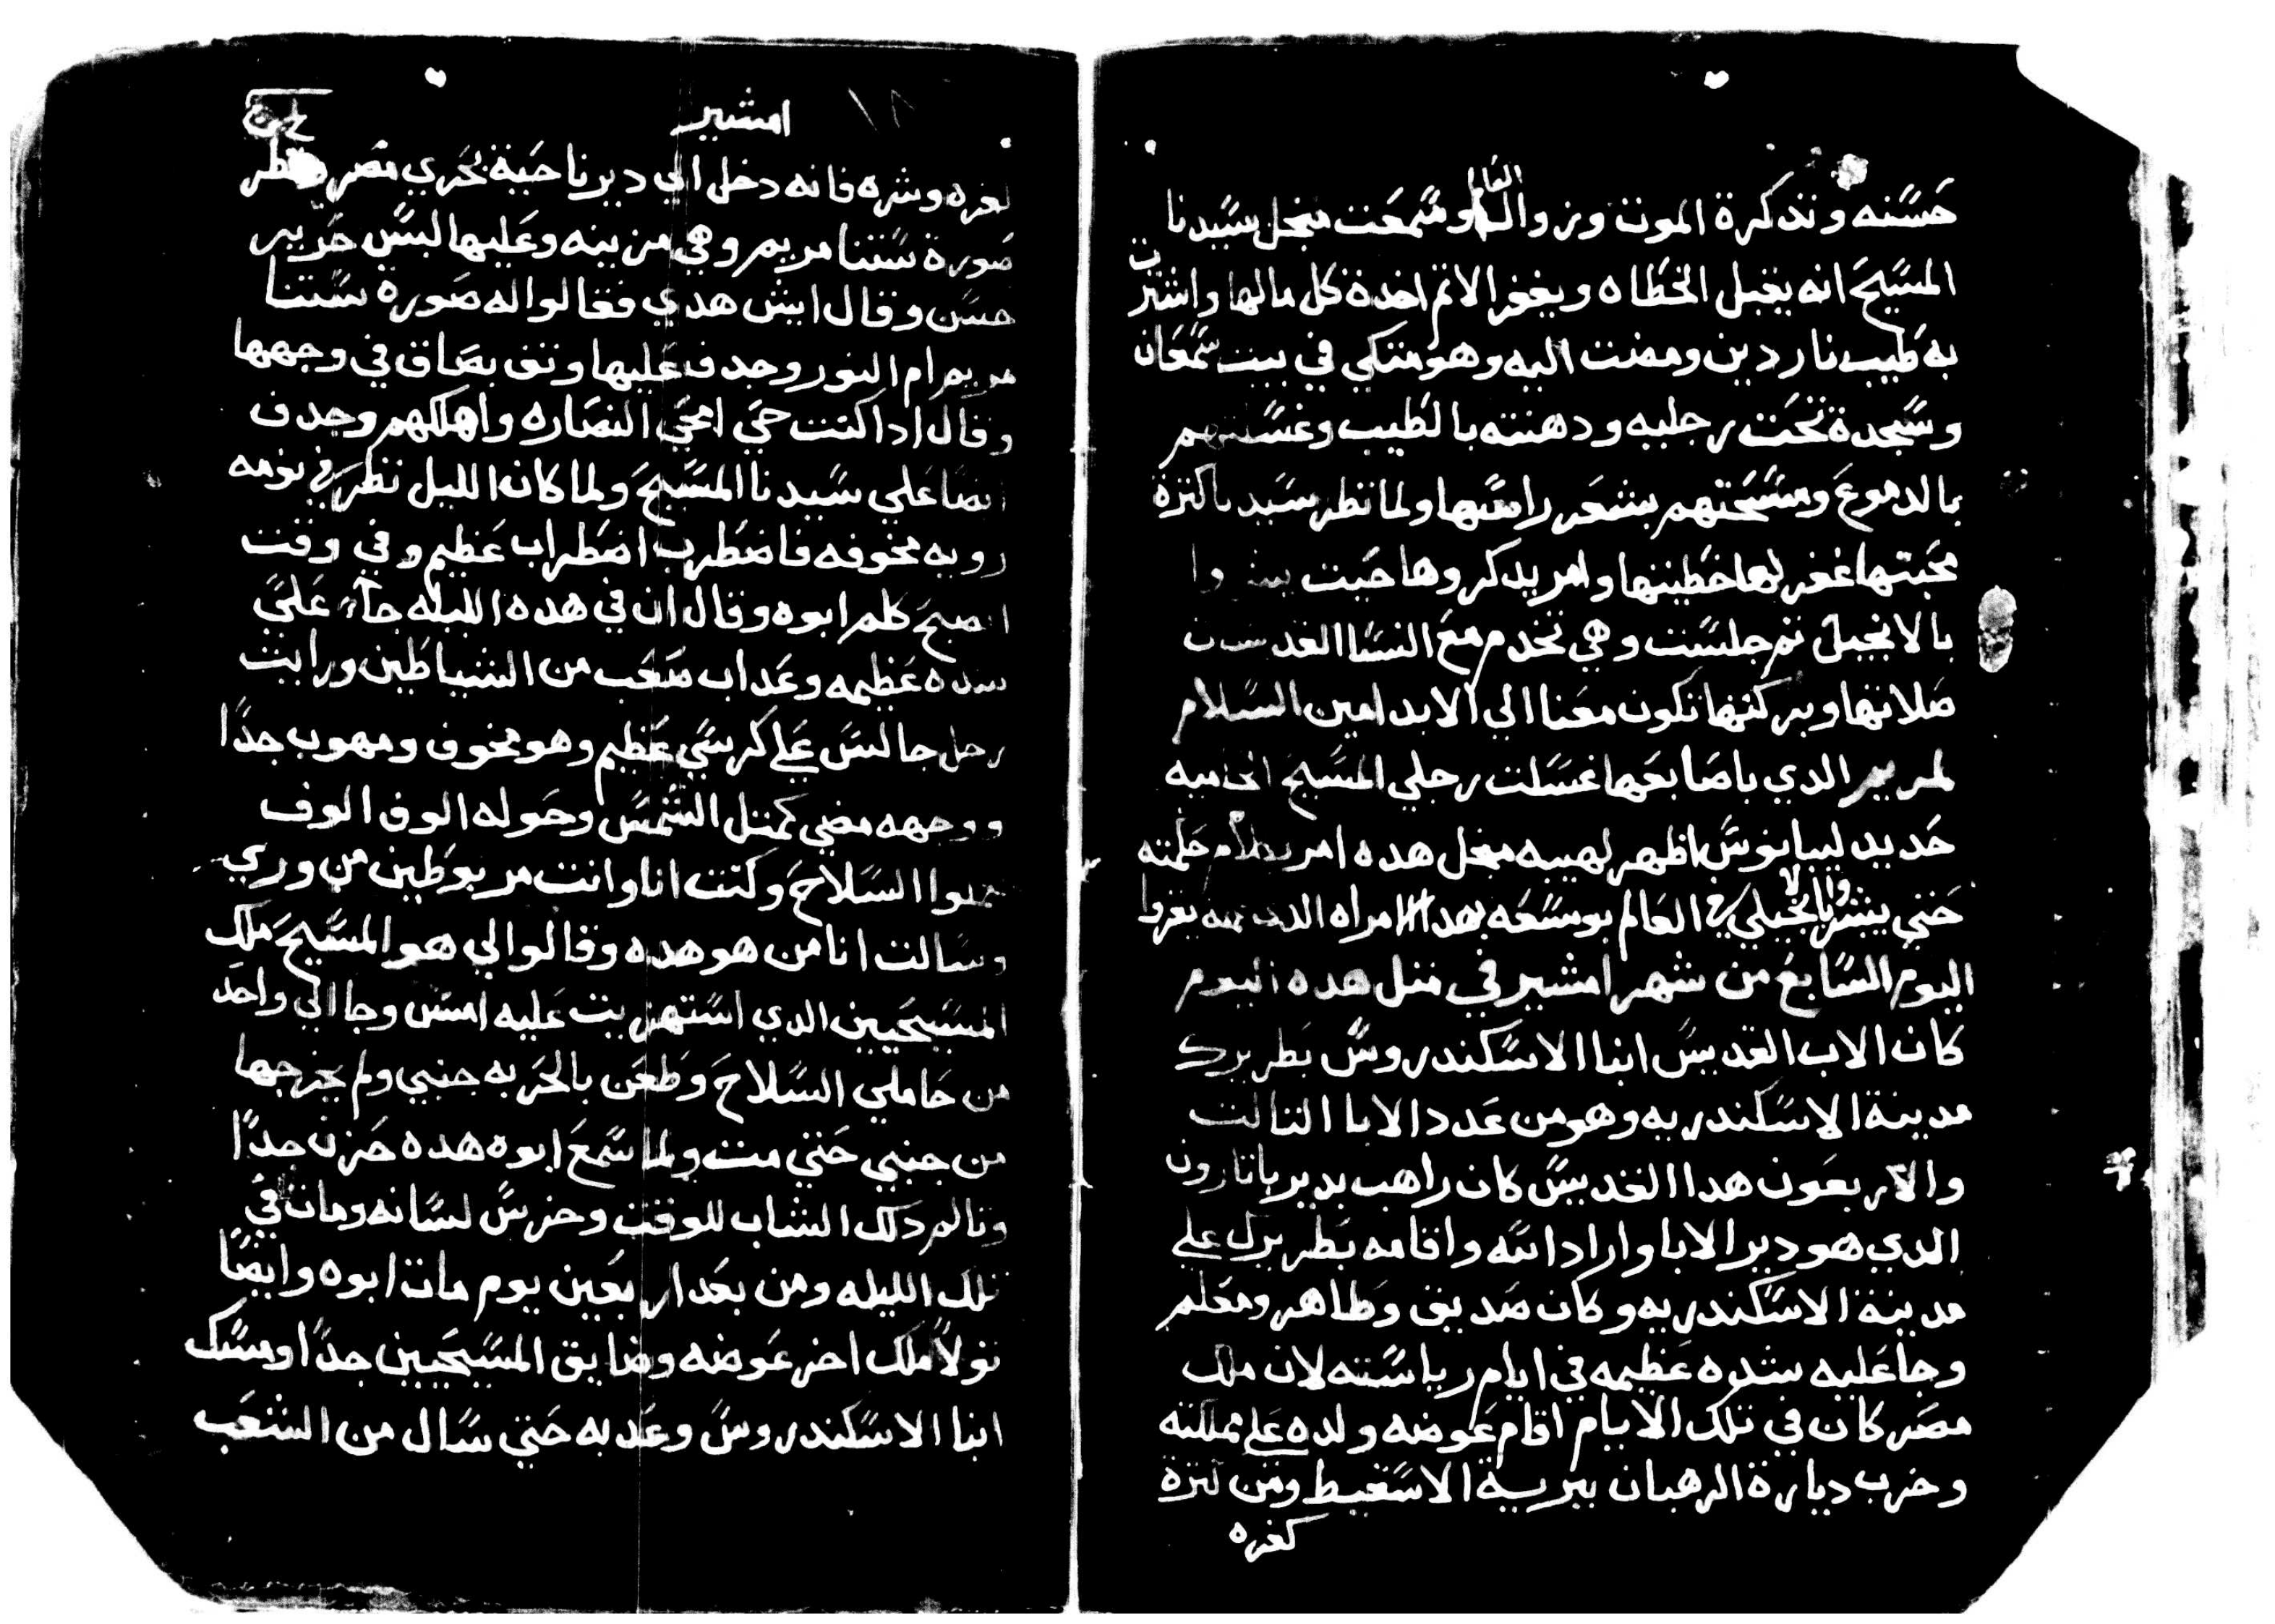 العالم
حسنه وتدكرة الموت وزوال وسمعت منجل سيدنا
المسيح انه يقبل الخطاه ويغفر الاتم اخدة كل مالها واشترت
به طيب ناردين ومضت اليه وهو متكي في بيت سمعان
وسجدة تحت رجليه ودهنته بالطيب وغسلتهم
بالدموع ومسحتهم بشعر راسها ولما نظر سيدنا كترة
محبتها غفر لها خطيتها وامر يدكروها حيت
بالانجيل تم جلست وهي تخدم مع النسا القديسات
صلاتها وبركتها تكون معنا الي الابد امين السلام
لمريم الدي باصابعها غسلت رجلي المسيح
حديد ليبانوس اظهر لهيبه منجل هده امر حلمته
حتي يبشروا بالانجيلي في العالم بوسعه بهدا امراه
اليوم السابع من شهر امشير في متل هده اليوم
كان الاب القديس ابنا الاسكندروس بطريرك
مدينة الاسكندريه وهو من عدد الابا التالت
والاربعون هدا القديس كان راهب بدير باتارون
الدي هو دير الابا واراد الله واقامه بطريرك علي
مدينة الاسكندريه وكان صديق وطاهر ومعلم
وجا عليه شده عظيمه في ايام رياسته لان ملك
مصر كان في تلك الايام اقام عوضه ولده علي مملكته
وخرب ديارة الرهبان ببرية الاسقيط ومن كترة
كفره
امشير
لفره وشره فانه دخل الي دير ناحية بحري مصر ونظر
صورة ستنا مريم وهي مزينه وعليها لبس حرير
حسن وقال ايش هدي فقالوا له صورة ستنا
مريم ام النور وجدف عليها وتف بصاق في وجهها
وقال ادا كنت حي امحي النصاره واهلكهم وجدف
ايضا علي سيدنا المسيح ولما كان الليل نظر في نومه
رويه مخوفه فاضطرب اضطراب عظيم وفي وقت
الصبح كلم ابوه وقال ان في هده الليله جاء علي
شده عظيمه وعداب صعب من الشياطين ورايت
رجل جالس علي كرسي عظيم وهو مخوف ومهوب جدا
ووجهه مضي كمتل الشمس وحوله الوف الوف
حملوا السلاح وكنت انا وانت مربوطين من وري
وسالت انا من هو هده وقالوا لي هو المسيح ملك
المسيحيين الدي استهزيت عليه امس وجا الي واحد
من حاملي السلاح وطعن بالحربه جنبي ولم يخرجها
من جنبي حتي مت ولما سمع ابوه هده حزن جدا
وتالم دلك الشاب للوقت وخرس لسانه ومات في
تلك الليله ومن بعد اربعين يوم مات ابوه وايضا
تولا ملك اخر عوضه وضايق المسيحيين جدا ومسك
ابنا الاسكندروس وعدبه حتي سال من الشعب